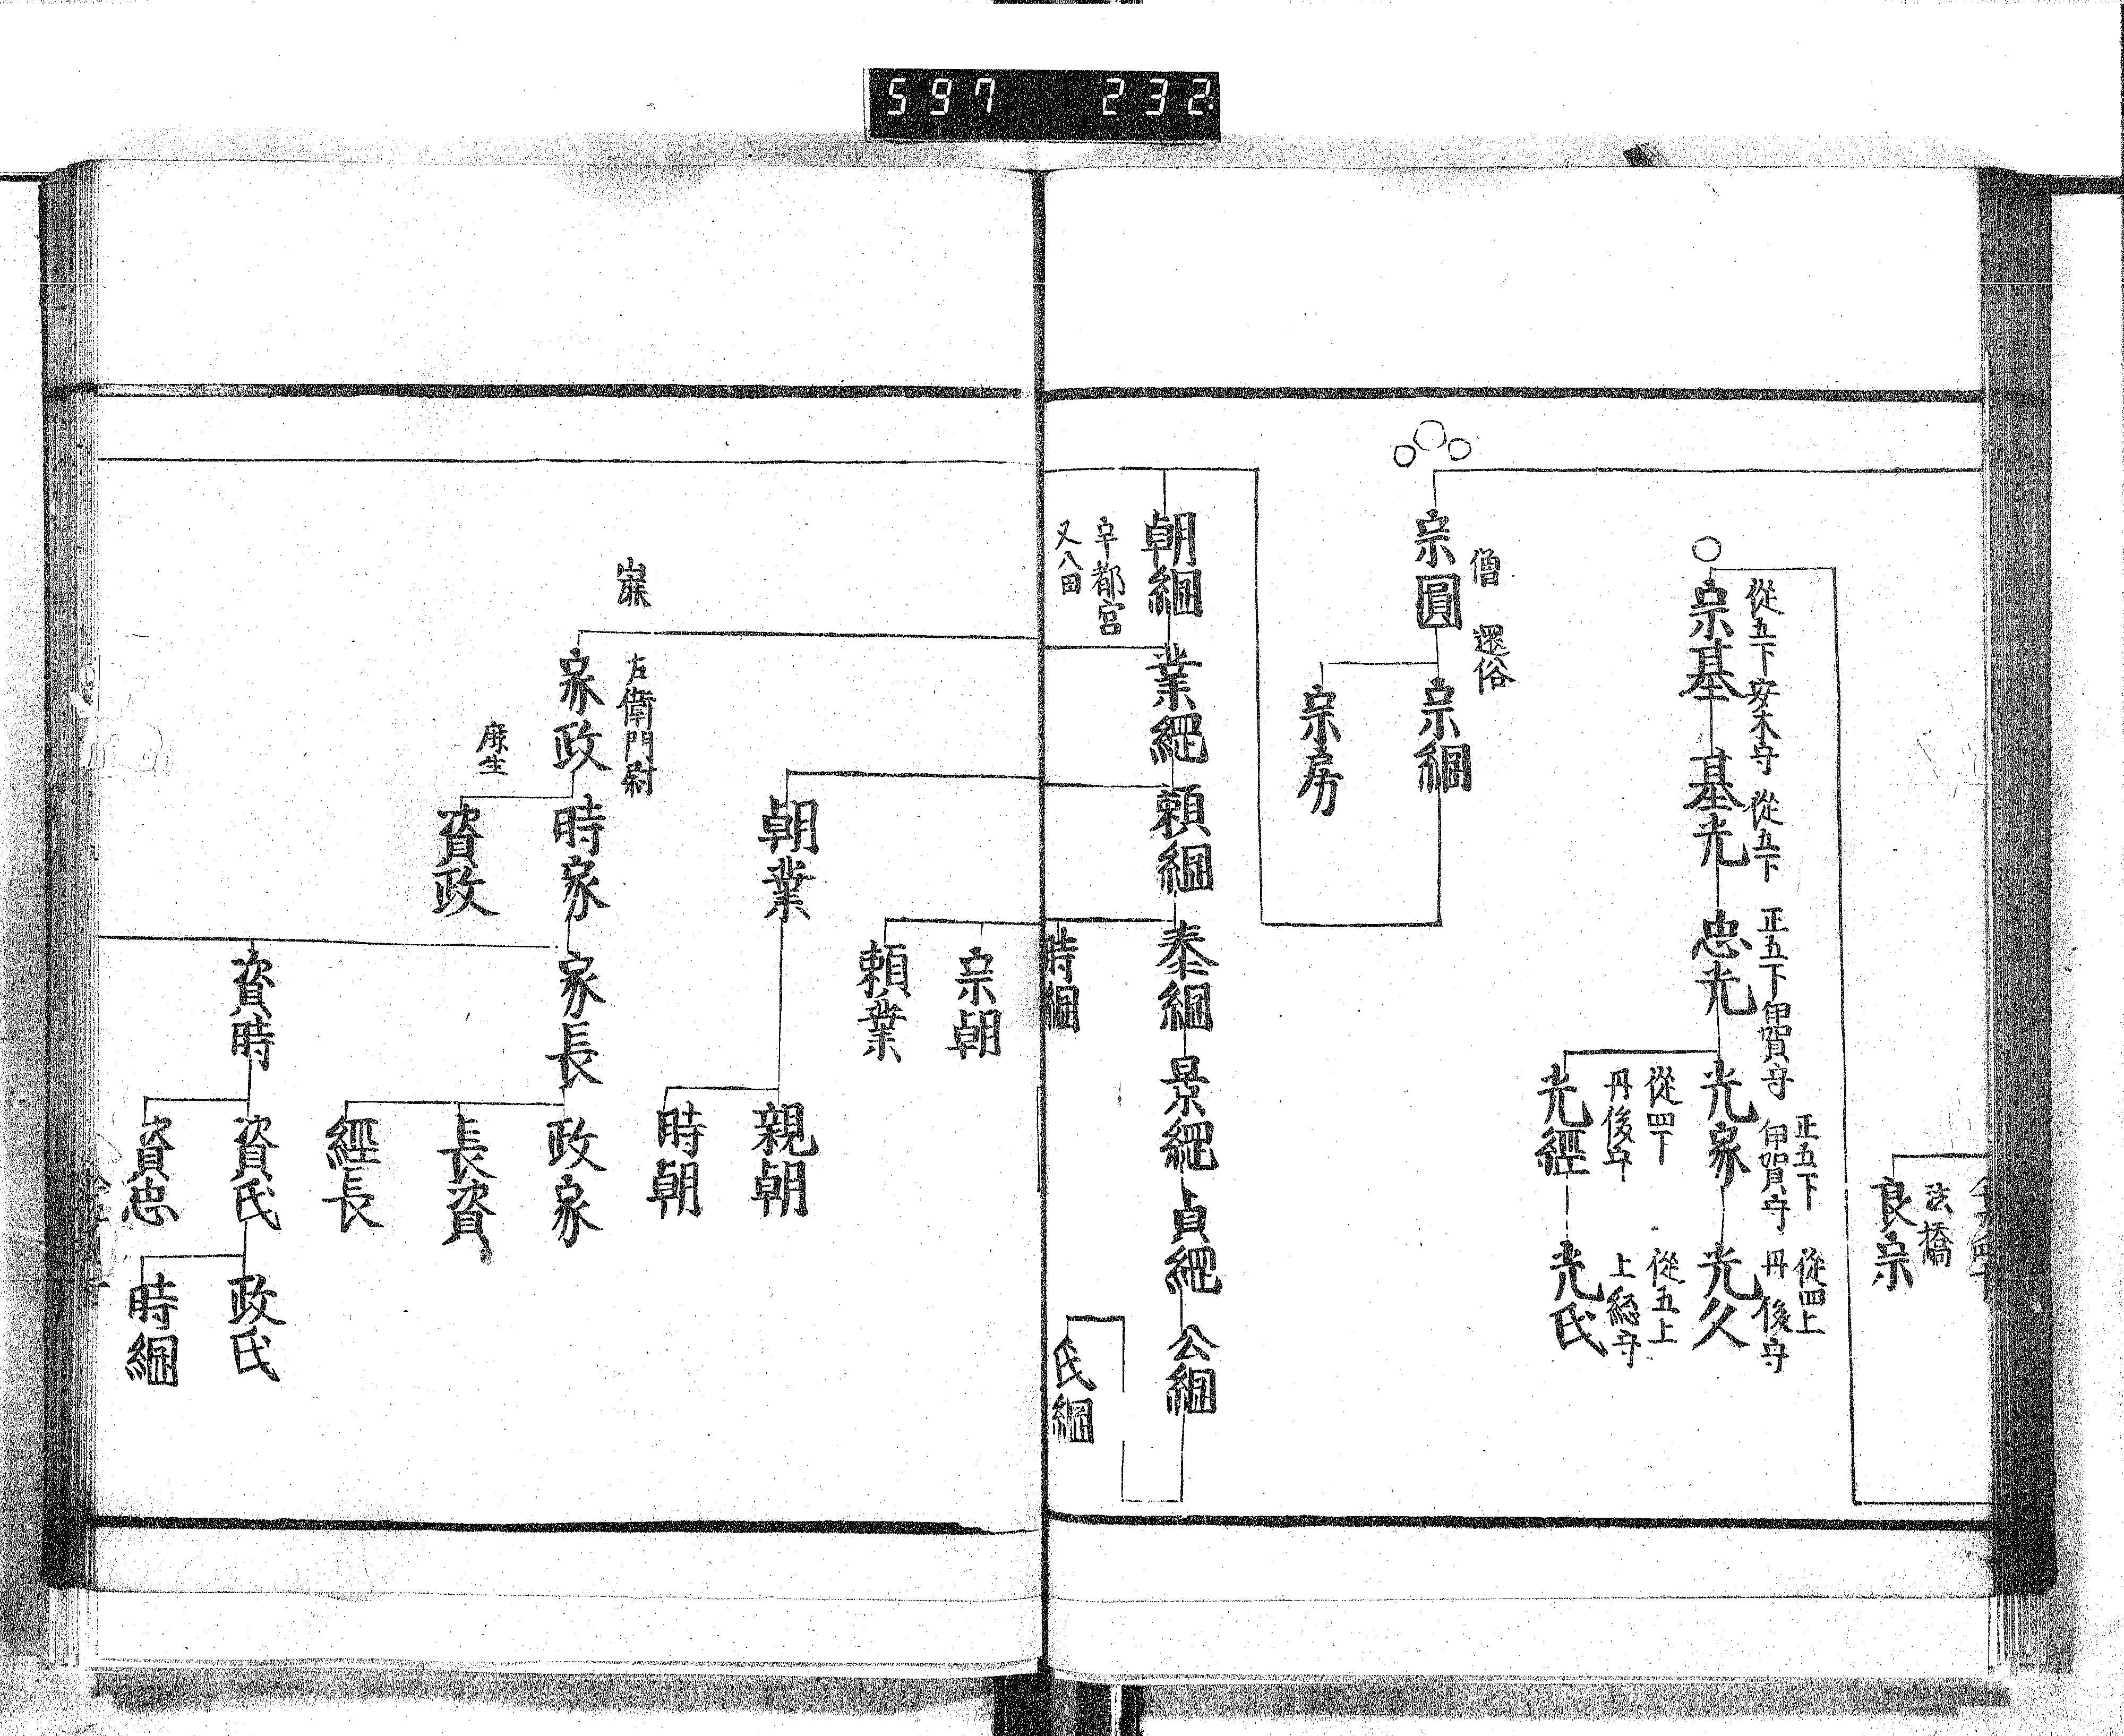 597 232
法橋
良宗
從五下安木守
宗基
從五下
基光
正五下甲賀守
忠光
正五下
甲賀守
光家
從四上
丹後守
光久
從四下
丹後守
光經
從五上
上総守
光氏
僧 還俗
宗圓
宗綱
宗房
朝綱
宇都宮
又八田
業綱
頼綱
泰綱
景綱
貞綱
公綱
氏綱
時綱
宗朝
頼業
朝業
親朝
時朝
左衛門尉
家政
時家
家長
政家
長資
經長
資政
資時
資氏
政氏
資忠
時綱